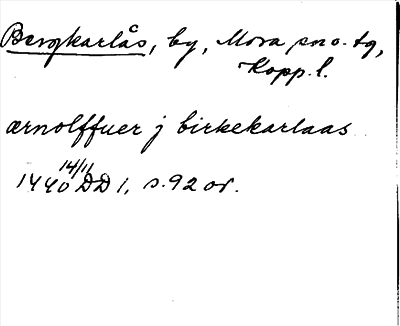 Bergkarlås, by, Mora sn o. tg,
Kopp. l.
ærnolffuer j birkekarlaas
14/11
1440 DD 1, s. 92 or.